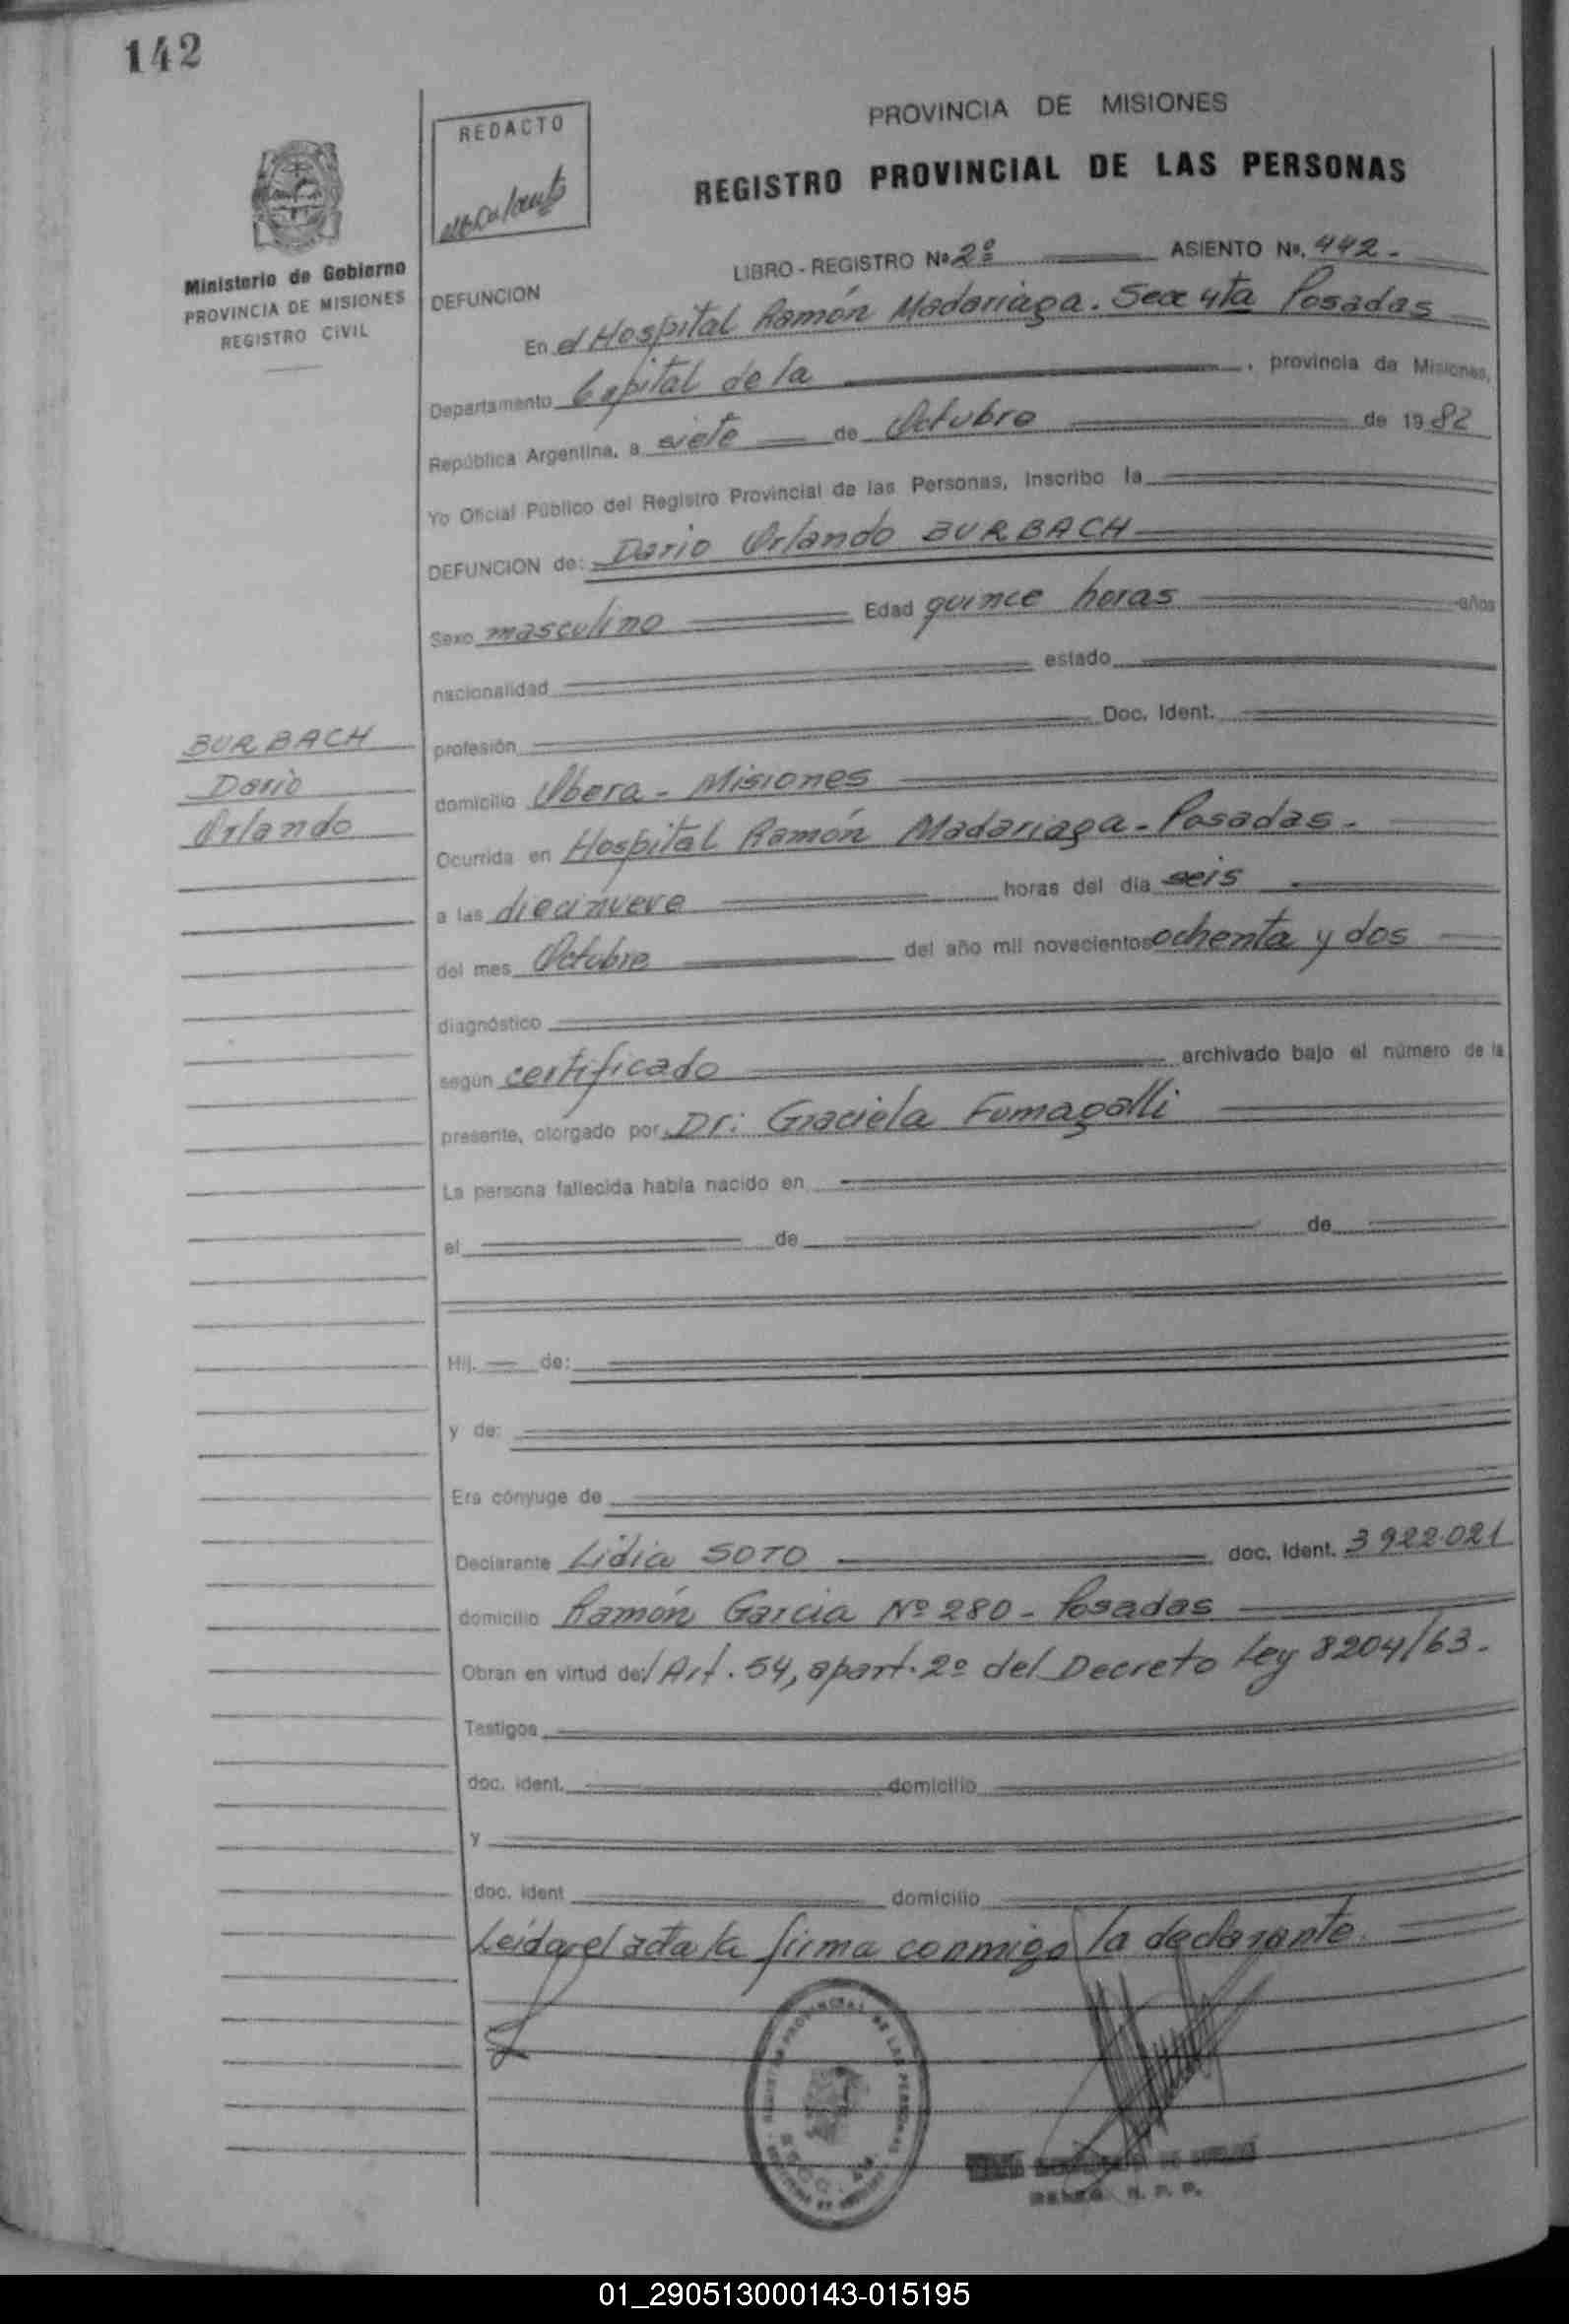 142
REDACTO
PROVINCIA DE MISIONES
REGISTRO PROVINCIAL DE LAS PERSONAS
Ministerio de Gobierno
PROVINCIA DE MISIONES
REGISTRO CIVIL
LIBRO - REGISTRO Nº 2º ASIENTO Nº. 442.-
DEFUNCION
En el Hospital Ramón Madariaga. Secc 4ta Posadas
Departamento Capital de la , provincia de Misiones,
República Argentina, a siete de Octubre de 1982
Yo Oficial Público del Registro Provincial de las Personas, inscribo la
DEFUNCION de: Dario Orlando BURBACH
Sexo masculino Edad quince horas años
nacionalidad estado
profesión Doc. Ident.
BURBACH
Dario
Orlando
domicilio Obera - Misiones
Ocurrida en Hospital Ramón Madariaga - Posadas.-
a las diecinueve horas del día seis
del mes Octubre del año mil novecientos ochenta y dos
diagnóstico
según certificado archivado bajo el número de la
presente, otorgado por Dr: Graciela Fumagalli
La persona fallecida había nacido en
el de de
Hij. de:
y de:
Era cónyuge de
Declarante Lidia SOTO doc. ident. 3922.021
domicilio Ramón Garcia Nº 280 - Posadas
Obran en virtud de/ Art. 54, apart. 2º del Decreto Ley 8204/63.-
Testigos
doc. ident. domicilio
y
doc. ident domicilio
Leída el acta la firma conmigo la declarante.
PROVINCIAL DE LAS PERSONAS
01_290513000143-015195